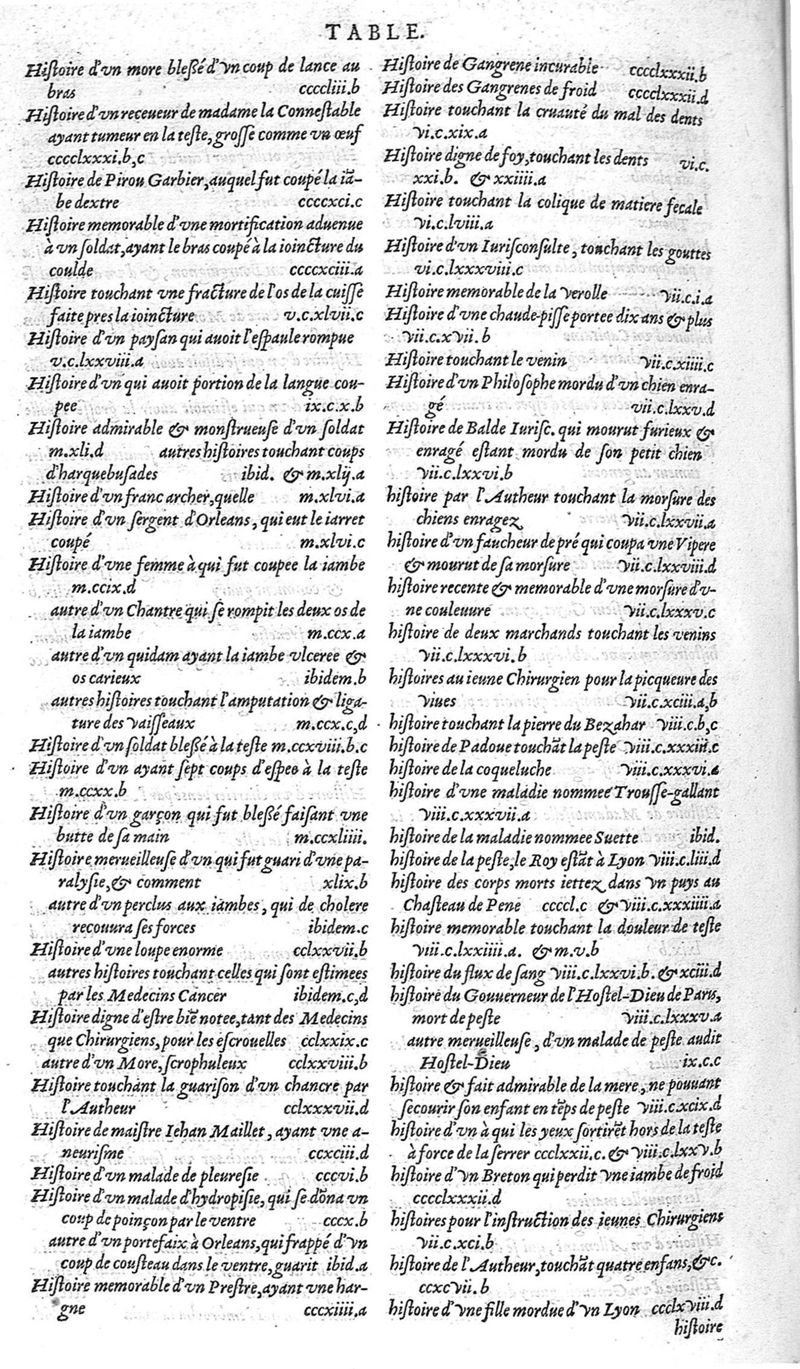 TABLE.
Histoire d'vn more blessé d'vn coup de lance au
bras ccccliii.b
Histoire d'vn receueur de madame la Connestable
ayant tumeur en la teste, grosse comme vn œuf
cccclxxxi.b,c
Histoire de Pirou Garbier, auquel fut coupé la iā-
be dextre ccccxci.c
Histoire memorable d'vne mortification aduenue
à vn soldat, ayant le bras coupé à la ioincture du
coulde ccccxciii.a
Histoire touchant vne fracture de l'os de la cuisse
faite pres la ioincture v.c.xlvii.c
Histoire d'vn paysan qui auoit l'espaule rompue
v.c.lxxviii.a
Histoire d'vn qui auoit portion de la langue cou-
pee ix.c.x.b
Histoire admirable & monstrueuse d'vn soldat
m.xli.d autres histoires touchant coups
d'harquebusades ibid. & m.xlij.a
Histoire d'vn franc archer, quelle m.xlvi.a
Histoire d'vn sergent d'Orleans, qui eut le iarret
coupé m.xlvi.c
Histoire d'vne femme à qui fut coupee la iambe
m.ccix.d
autre d'vn Chantre qui se rompit les deux os de
la iambe m.ccx.a
autre d'vn quidam ayant la iambe vlceree &
os carieux ibidem.b
autres histoires touchant l'amputation & liga-
ture des vaisseaux m.ccx.c,d
Histoire d'vn soldat blessé à la teste m.ccxviii.b.c
Histoire d'vn ayant sept coups d'espee à la teste
m.ccxx.b
Histoire d'vn garçon qui fut blessé faisant vne
butte de sa main m.ccxliiii.
Histoire merueilleuse d'vn qui fut guari d'vne pa-
ralysie, & comment xlix.b
autre d'vn perclus aux iambes, qui de cholere
recouura ses forces ibidem.c
Histoire d'vne loupe enorme cclxxvii.b
autres histoires touchant celles qui sont estimees
par les Medecins Cancer ibidem.c,d
Histoire digne d'estre biē notee, tant des Medecins
que Chirurgiens, pour les escrouelles cclxxix.c
autre d'vn More, scrophuleux cclxxviii.b
Histoire touchant la guarison d'vn chancre par
l'Autheur cclxxxvii.d
Histoire de maistre Iehan Maillet, ayant vne a-
neurisme ccxciii.d
Histoire d'vn malade de pleuresie cccvi.b
Histoire d'vn malade d'hydropisie, qui se dōna vn
coup de poinçon par le ventre cccx.b
autre d'vn portefaix à Orleans, qui frappé d'vn
coup de cousteau dans le ventre, guarit ibid.a
Histoire memorable d'vn Prestre, ayant vne har-
gne cccxiiii.a
Histoire de Gangrene incurable cccclxxxii.b
Histoire des Gangrenes de froid cccclxxxii.d
Histoire touchant la cruauté du mal des dents
vi.c.xix.a
Histoire digne de foy, touchant les dents vi.c.
xxi.b. & xxiiii.a
Histoire touchant la colique de matiere fecale
vi.c.lviii.a
Histoire d'vn Iurisconsulte, touchant les gouttes
vi.c.lxxxviii.c
Histoire memorable de la verolle vii.c.i.a
Histoire d'vne chaude-pisse portee dix ans & plus
vii.c.xvii.b
Histoire touchant le venin vii.c.xiiii.c
Histoire d'vn Philosophe mordu d'vn chien enra-
gé vii.c.lxxv.d
Histoire de Balde Iurisc. qui mourut furieux &
enragé estant mordu de son petit chien
vii.c.lxxvi.b
histoire par l'Autheur touchant la morsure des
chiens enragez vii.c.lxxvii.a
histoire d'vn faucheur de pré qui coupa vne Vipere
& mourut de sa morsure vii.c.lxxviii.d
histoire recente & memorable d'vne morsure d'v-
ne couleuure vii.c.lxxxv.c
histoire de deux marchands touchant les venins
vii.c.lxxxvi.b
histoires au ieune Chirurgien pour la picqueure des
viues vii.c.xciii.a,b
histoire touchant la pierre du Bezahar viii.c.b,c
histoire de Padoue touchāt la peste viii.c.xxxiii.c
histoire de la coqueluche viii.c.xxxvi.a
histoire d'vne maladie nommee Trousse-gallant
viii.c.xxxvii.a
histoire de la maladie nommee Suette ibid.
histoire de la peste, le Roy estāt à Lyon viii.c.liii.d
histoire des corps morts iettez dans vn puys au
Chasteau de Pené ccccl.c & viii.c.xxxiiii.a
histoire memorable touchant la douleur de teste
viii.c.lxxiiii.a. & m.v.b
histoire du flux de sang viii.c.lxxvi.b. & xciii.d
histoire du Gouuerneur de l'Hostel-Dieu de Paris,
mort de peste viii.c.lxxxv.a
autre merueilleuse, d'vn malade de peste audit
Hostel-Dieu ix.c.c
histoire & fait admirable de la mere, ne pouuant
secourir son enfant en tēps de peste viii.c.xcix.d
histoire d'vn à qui les yeux sortirēt hors de la teste
à force de la serrer ccclxxii.c. & viii.c.lxxv.b
histoire d'vn Breton qui perdit vne iambe de froid
cccclxxxii.d
histoires pour l'instruction des ieunes Chirurgiens
vii.c.xci.b
histoire de l'Autheur, touchāt quatre enfans, &c.
ccxcvii.b
histoire d'vne fille mordue d'vn Lyon ccclxviii.d
histoire